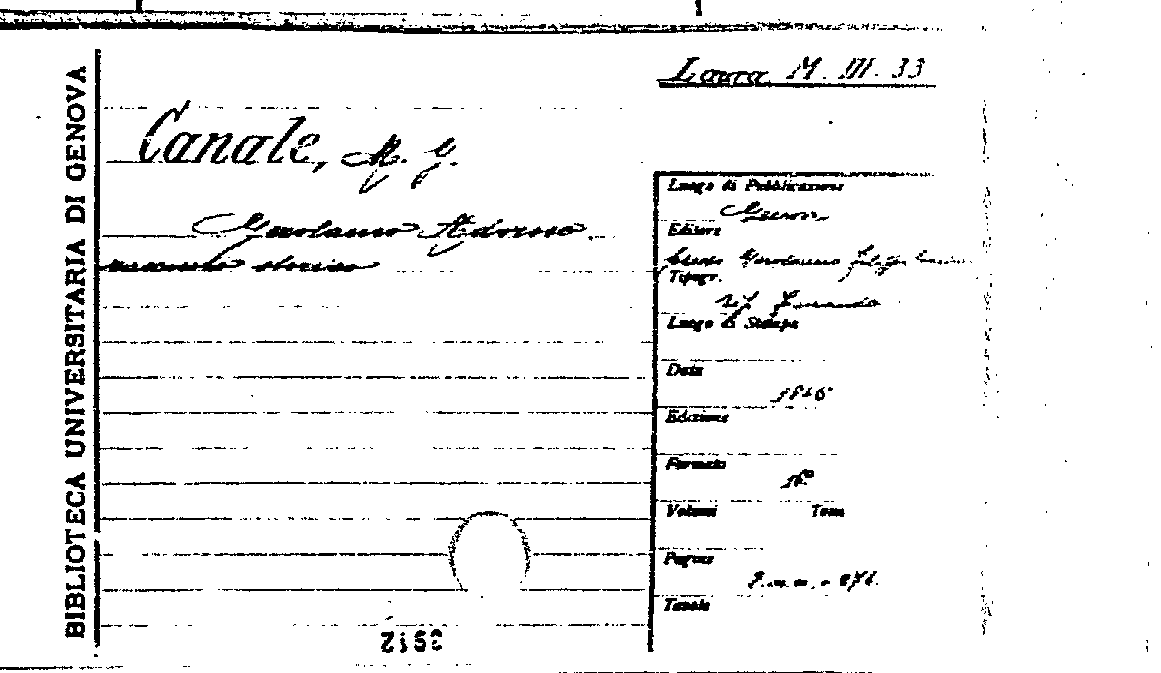 BIBLIOTECA UNIVERSITARIA DI GENOVA
Laura M. III. 33
Canale, M. G.
Gerolamo Adorno.
racconto storico
Luogo di Pubblicazione
Genova
Editore
Gerolamo
Tipogr.
Luogo di Stampa
Data
1846
Edizione
Formato
16°
Volumi Tomi
Pagine
Tavole